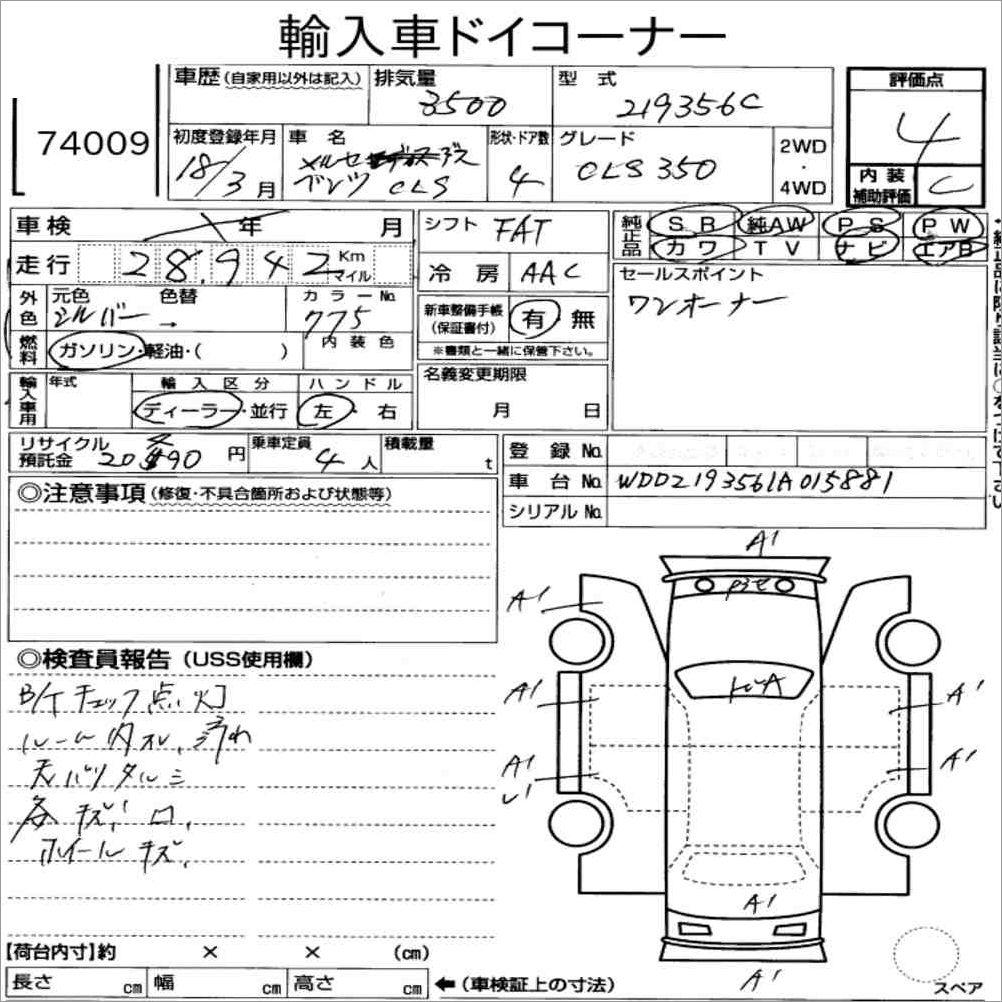 輸入車ドイコーナー
74009
車歴(自家用以外は記入) 排気量 3500 型式 219356C
初度登録年月 18/3月 車名 メルセデス ベンツ CLS 形状・ドア数 4 グレード CLS350 2WD・4WD
評価点 4
内装補助評価 C
車検 年 月
走行 28,942 Km マイル
外色 元色 シルバー 色替 → カラーNo. 775
内装色
燃料 ガソリン・軽油・( )
輸入車用 年式 輸入区分 ディーラー・並行 ハンドル 左・右
シフト FAT
冷房 AAC
新車整備手帳(保証書付) 有 無
※書類と一緒に保管下さい。
名義変更期限 月 日
純正品 SR 純AW PS PW
カワ TV ナビ エアB
セールスポイント
ワンオーナー
リサイクル預託金 円 乗車定員 4人 積載量 t
登録No.
車台No. WDD2193561A015881
シリアルNo.
◎注意事項(修復・不具合箇所および状態等)
◎検査員報告(USS使用欄)
B/Tチェック点灯
ルーム内スレ、汚れ
天バリタルミ
各キズ、
ホイールキズ、
A1
A1
A1
A1
A1
A1
A1
A1
【荷台内寸】約 × × (cm)
長さ cm 幅 cm 高さ cm ←(車検証上の寸法)
スペア